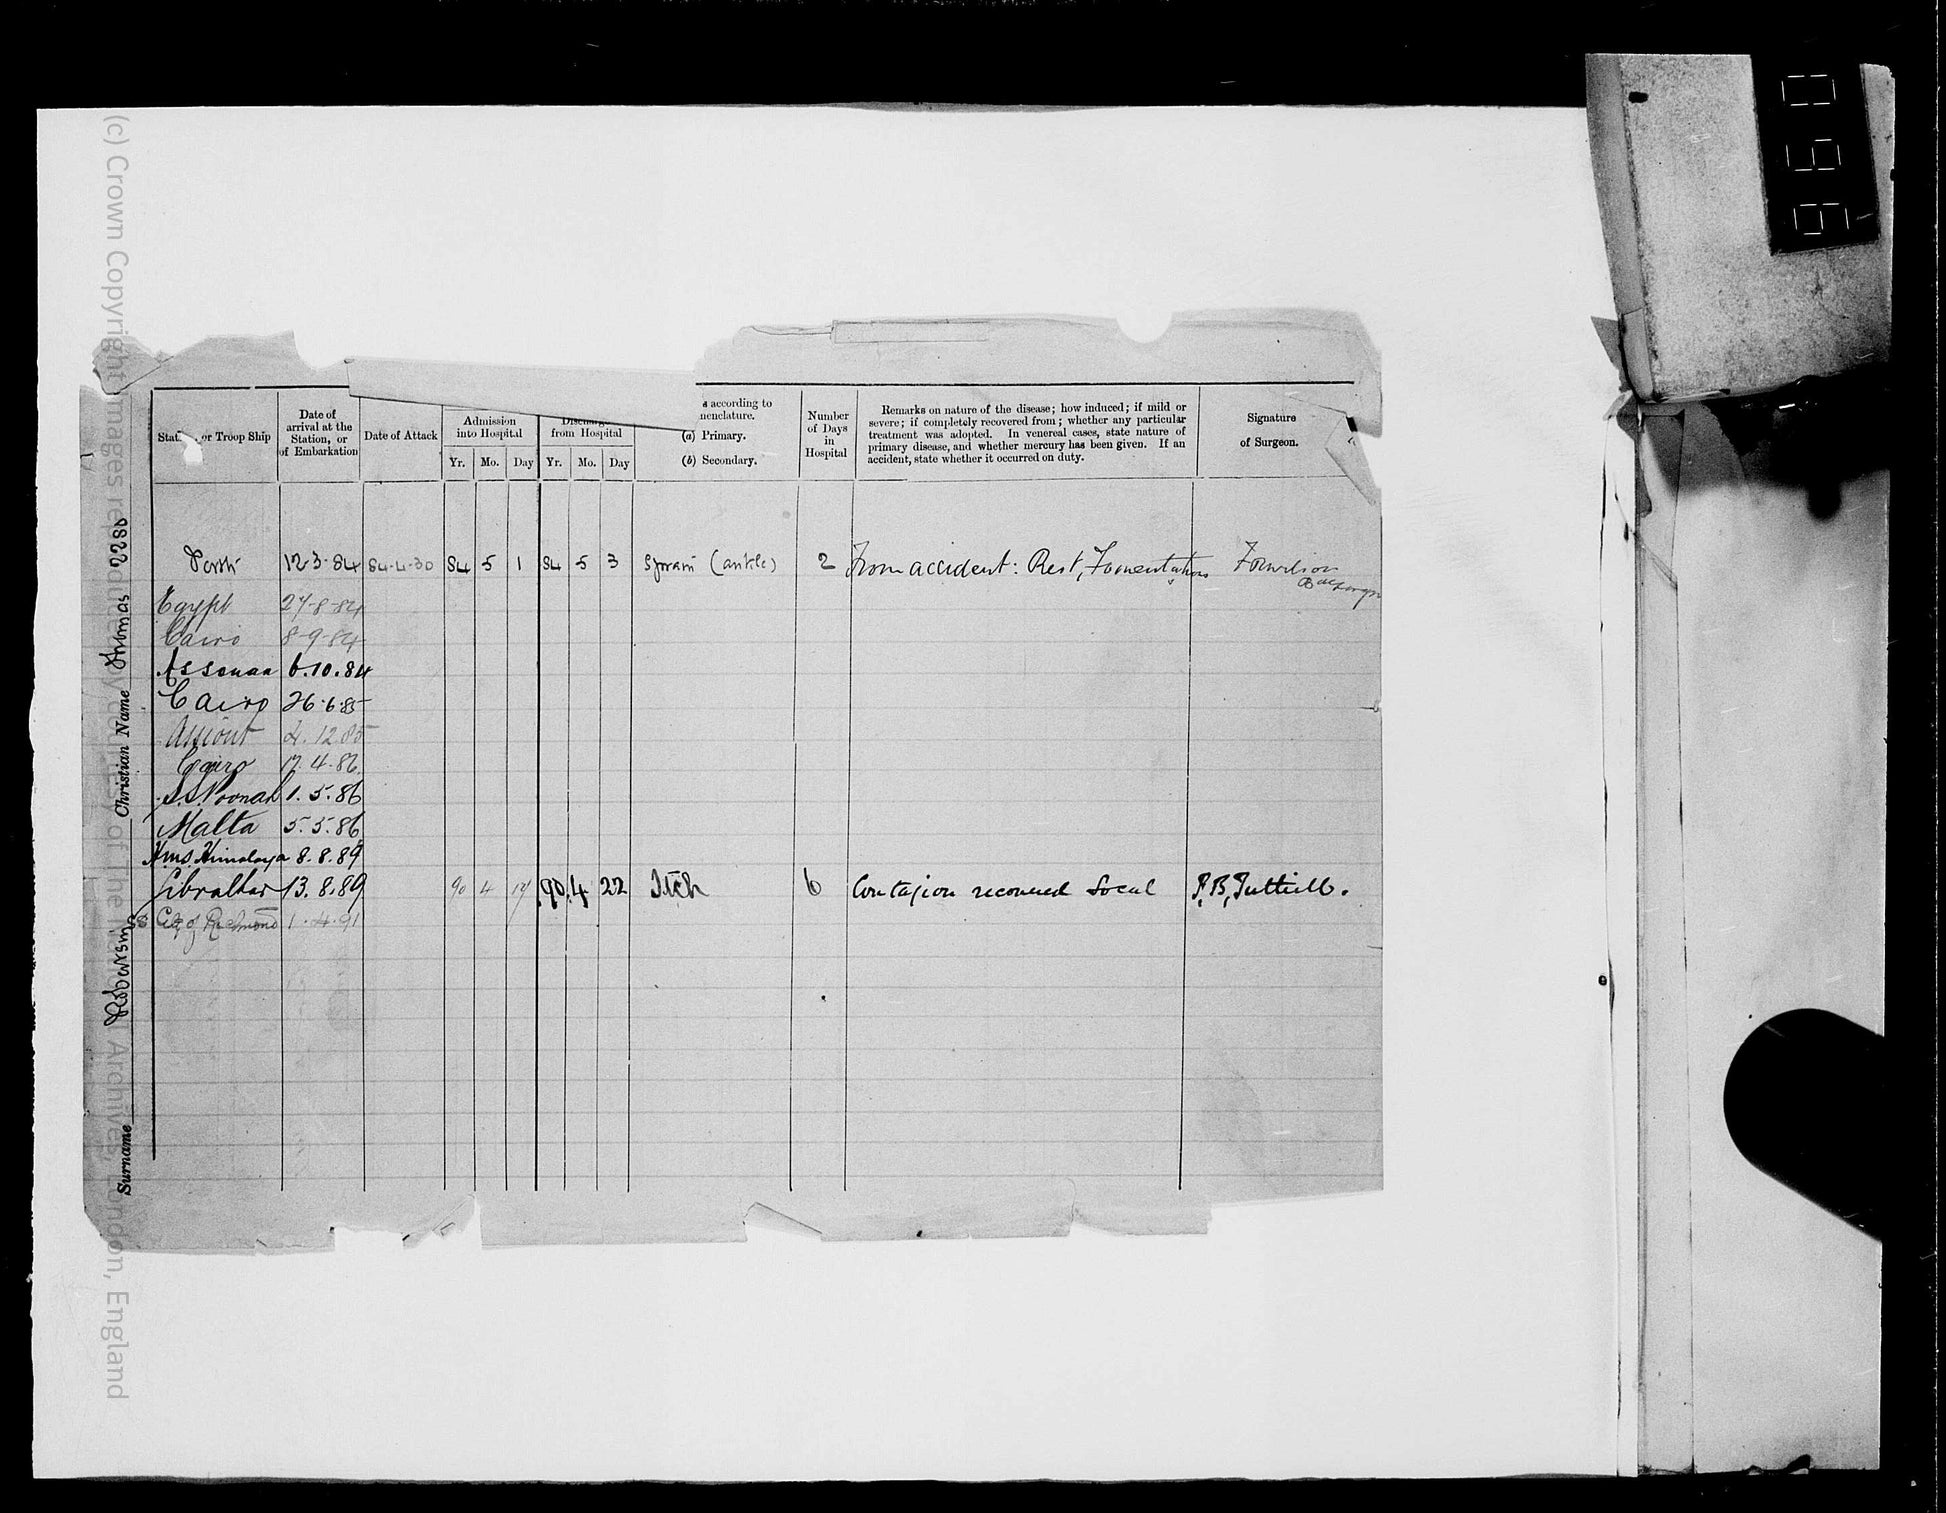 Date of arrival at the Station, or of Embarkation
or Troop Ship
Date of Attack
Admission into Hospital
Yr. Mo. Day
from Hospital
Yr. Mo. Day
s according to
nenclature.
(a) Primary.
(b) Secondary.
Number of Days in Hospital
Remarks on nature of the disease; how induced; if mild or
severe; if completely recovered from; whether any particular
treatment was adopted. In venereal cases, state nature of
primary disease, and whether mercury has been given. If an
accident, state whether it occurred on duty.
Signature
of Surgeon.
Perth 12-3-84 84-4-30 84 5 1 84 5 3 Sprain (ankle) 2 From accident: Rest, Fomentations
Egypt 27-8-84
Cairo 8-9-84
Assouan 6.10.84
Cairo 26.6.85
Assiout 4.12.85
Cairo 17.4.86
S.S. Poonah 1.5.86
Malta 5.5.86
Hms Himalaya 8.8.89
Gibraltar 13.8.89 90 4 17 90 4 22 Itch 6 Contagion recovered Local P.B. Tuthill.
SS City of Richmond 1.4.91
Surname Robertson Christian Name Thomas 2280
(c) Crown Copyright Images reproduced by courtesy of The National Archives, London, England
960